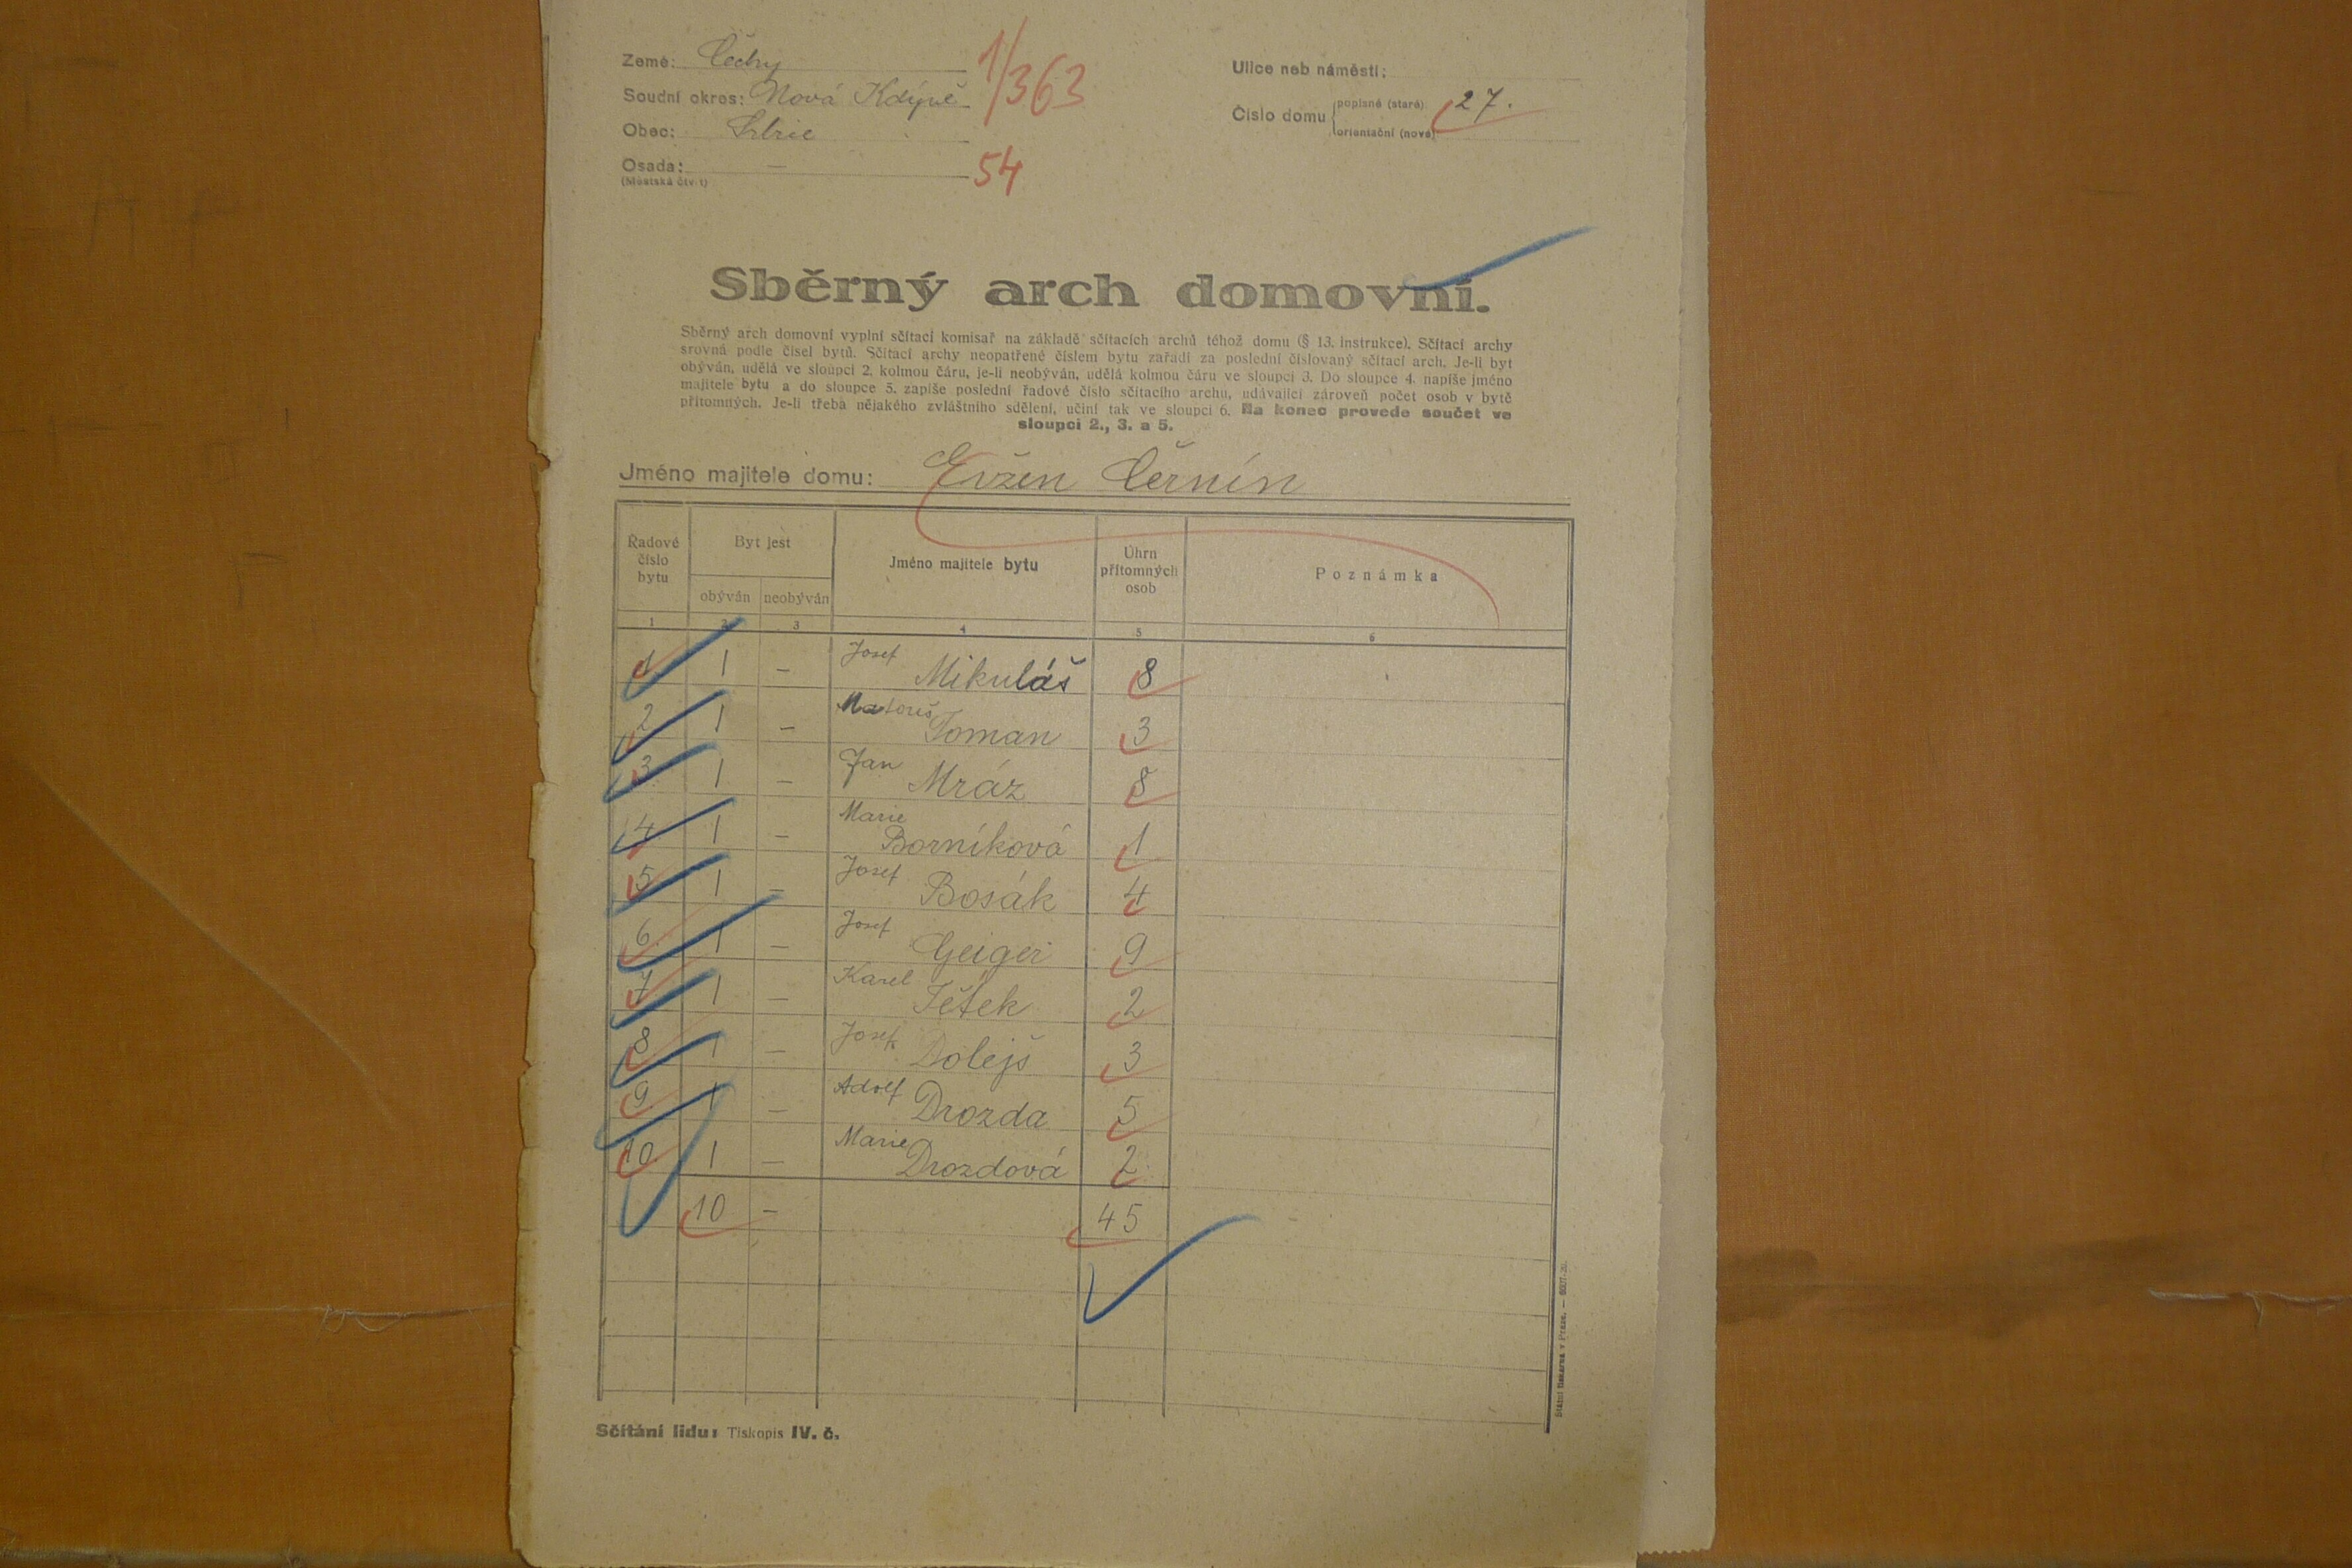 Země: Čechy
Soudní okres: Nová Kdýně
Obec: Srbic
Osada: —
(Městská čtvrt)
1/363
54
Ulice neb náměstí:
Číslo domu
popisné (staré) 27.
orientační (nové)
Sběrný arch domovní.
Sběrný arch domovní vyplní sčítací komisař na základě sčítacích archů téhož domu (§ 13. instrukce). Sčítací archy
srovná podle čísel bytů. Sčítací archy neopatřené číslem bytu zařadí za poslední číslovaný sčítací arch. Je-li byt
obýván, udělá ve sloupci 2. kolmou čáru, je-li neobýván, udělá kolmou čáru ve sloupci 3. Do sloupce 4. napíše jméno
majitele bytu a do sloupce 5. zapíše poslední řadové číslo sčítacího archu, udávající zároveň počet osob v bytě
přítomných. Je-li třeba nějakého zvláštního sdělení, učiní tak ve sloupci 6. Na konec provede součet ve
sloupci 2., 3. a 5.
Jméno majitele domu: Evžen Černín
Řadové číslo bytu
Byt jest
obýván
neobýván
Jméno majitele bytu
Úhrn přítomných osob
Poznámka
1 2 3 4 5 6
1 1 – Josef Mikuláš 8
2 1 – Matouš Toman 3
3 1 – Jan Mráz 8
4 1 – Marie Borníková 1
5 1 – Josef Bosák 4
6 1 – Josef Geiger 9
7 1 – Karel Tětek 2
8 1 – Josef Dolejš 3
9 1 – Adolf Drozda 5
10 1 – Marie Drozdová 2
10 – 45
Sčítání lidu: Tiskopis IV. č.
Státní tiskárna v Praze. —